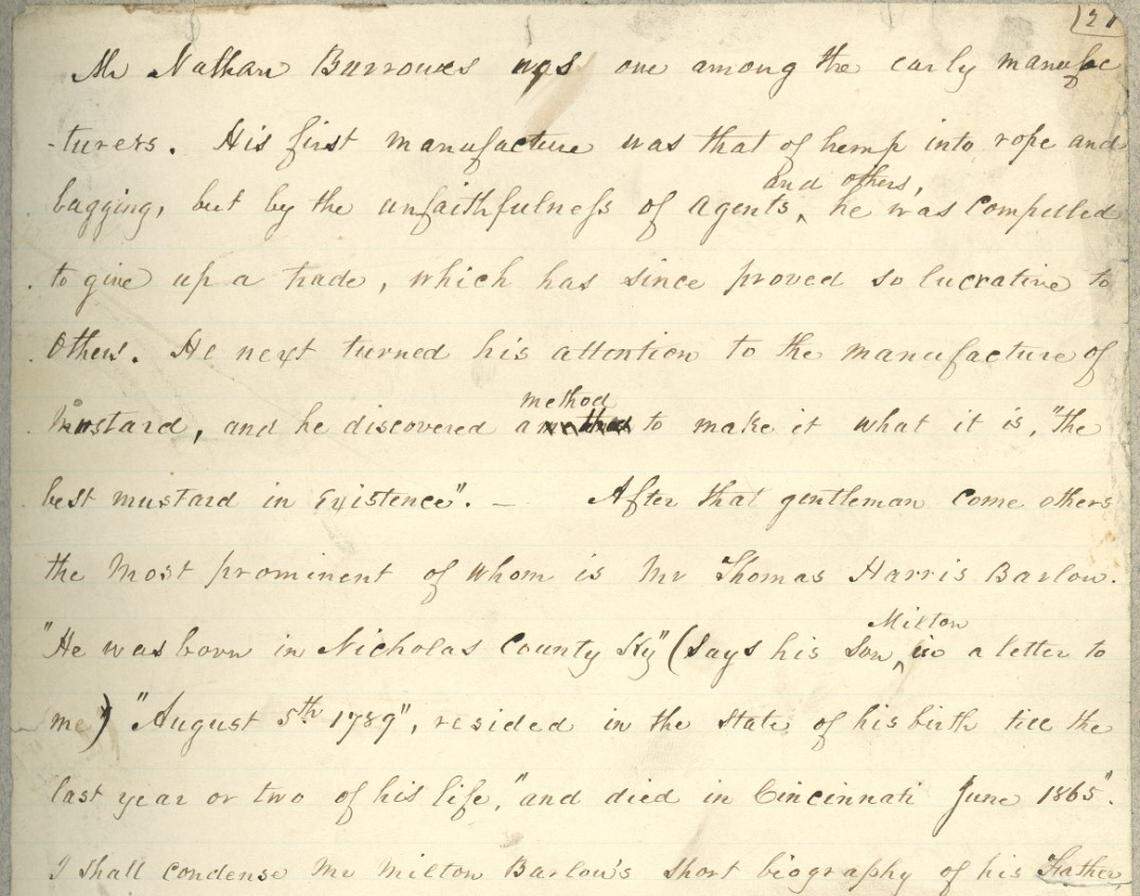 21
Mr Nathan Burrowes was one among the early manufac
-turers. His first manufacture was that of hemp into rope and
and others,
bagging, but by the unfaithfulness of agents, he was compelled
to give up a trade, which has since proved so lucrative to
others. He next turned his attention to the manufacture of
method
mustard, and he discovered a method to make it what it is, "the
best mustard in Existence". — After that gentleman come others
the most prominent of whom is Mr Thomas Harris Barlow.
Milton
"He was born in Nicholas County Ky" (says his son, in a letter to
me) "August 5th 1789", resided in the state of his birth till the
last year or two of his life, "and died in Cincinnati June 1865".
I shall condense Mr Milton Barlow's short biography of his Father,